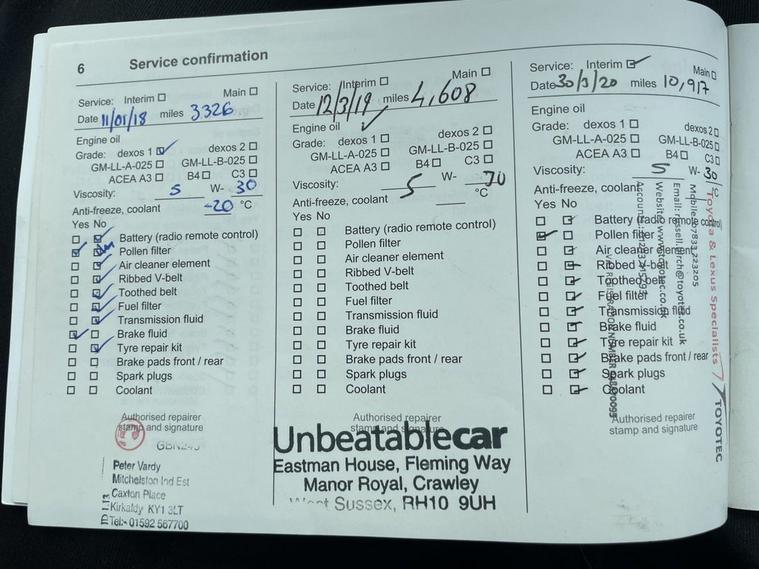 6 Service confirmation
Service: Interim ☐ Main ☐
Date 11/01/18 miles 3326
Engine oil
Grade: dexos 1 ☑ dexos 2 ☐
GM-LL-A-025 ☐ GM-LL-B-025 ☐
ACEA A3 ☐ B4 ☐ C3 ☐
Viscosity: 5 W- 30
Anti-freeze, coolant -20 °C
Yes No
Battery (radio remote control)
Pollen filter
Air cleaner element
Ribbed V-belt
Toothed belt
Fuel filter
Transmission fluid
Brake fluid
Tyre repair kit
Brake pads front / rear
Spark plugs
Coolant
Authorised repairer
stamp and signature
Peter Vardy
Mitchelston Ind Est
Caxton Place
Kirkaldy KY1 3LT
Tel:- 01592 567700
Service: Interim ☐ Main ☐
Date 12/3/19 miles 4,608
Engine oil
Grade: dexos 1 ☐ dexos 2 ☐
GM-LL-A-025 ☐ GM-LL-B-025 ☐
ACEA A3 ☐ B4 ☐ C3 ☐
Viscosity: 5 W- 30
Anti-freeze, coolant °C
Yes No
Battery (radio remote control)
Pollen filter
Air cleaner element
Ribbed V-belt
Toothed belt
Fuel filter
Transmission fluid
Brake fluid
Tyre repair kit
Brake pads front / rear
Spark plugs
Coolant
Authorised repairer
stamp and signature
Unbeatablecar
Eastman House, Fleming Way
Manor Royal, Crawley
West Sussex, RH10 9UH
Service: Interim ☑ Main ☐
Date 30/3/20 miles 10,917
Engine oil
Grade: dexos 1 ☐ dexos 2 ☐
GM-LL-A-025 ☐ GM-LL-B-025 ☐
ACEA A3 ☐ B4 ☐ C3 ☐
Viscosity: 5 W- 30
Anti-freeze, coolant °C
Yes No
Battery (radio remote control)
Pollen filter
Air cleaner element
Ribbed V-belt
Toothed belt
Fuel filter
Transmission fluid
Brake fluid
Tyre repair kit
Brake pads front / rear
Spark plugs
Coolant
Authorised repairer
stamp and signature
TOYOTEC
Toyota & Lexus Specialists